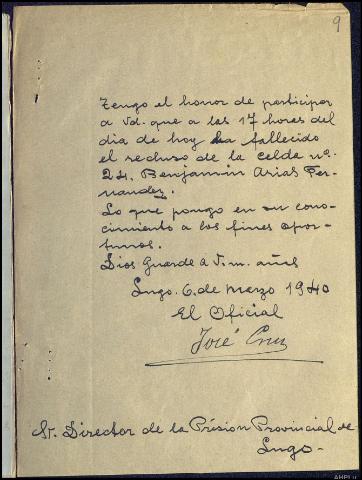 9
Tengo el honor de participar
a Vd. que a las 17 horas del
dia de hoy ha fallecido
el recluso de la celda nº.
24. Benjamin Arias Fer-
nandez.
Lo que pongo en su cono-
cimiento a los fines opor-
tunos.
Dios Guarde a V. m. años
Lugo. 6. de Marzo 1940
El Oficial
José Cruz
Sr. Director de la Prision Provincial de
Lugo.-
AHPLU